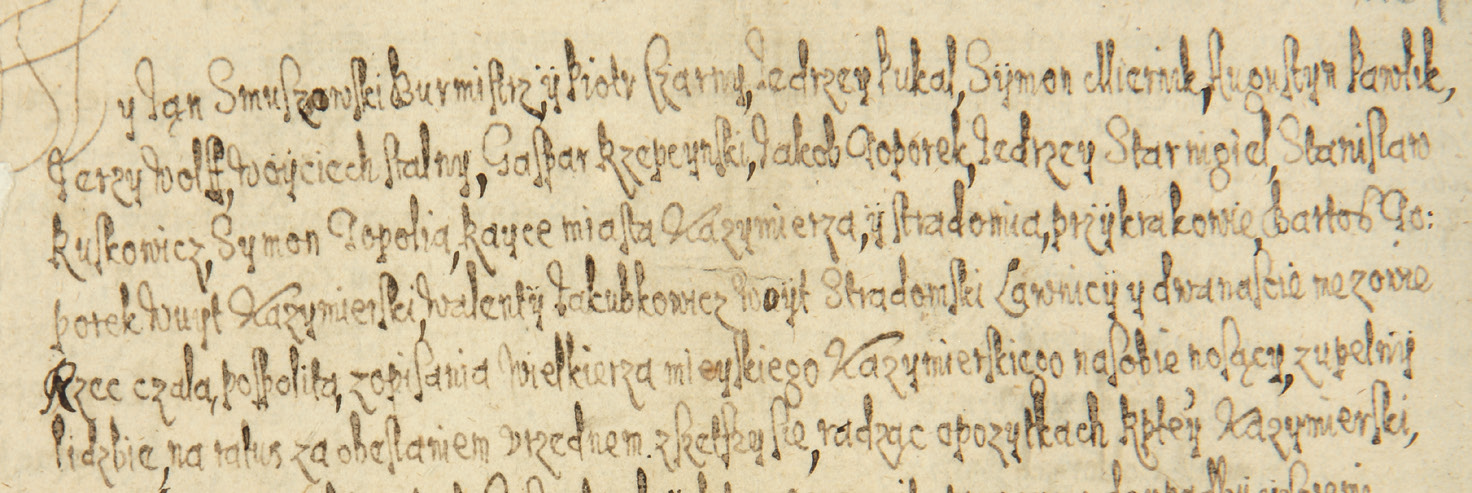 y Jąn Smuszowski Burmistrz, ÿ Piotr Czarny, Jedrzey Pukal, Sÿmon Miernik, Augustyn Pawlik,
Jerzy Wolff, Woyciech stalny, Gaspar Rzepeynski, Jakob Toporek, Jedrzey Starnigiel, Stanislaw
Ruskowicz, Symon Topolia, Rayce miasta Kazymierza, ÿ stradomia, przÿ krakowie, Bartos To:
porek Wuyt Kazymierski, Walentÿ Jakubkowicz Woyt Stradomski Lawnicÿ y dwanascie mezowie
Rzec czala, pospolita, zopisania Wielkierza mieyskiego Kazymierskiego na sobie nosący, zupelnÿ
lidzbie, na ratus za obeslaniem vrzednem zszetszy sie, radząc o pozytkach Rpltey Kazymierski,